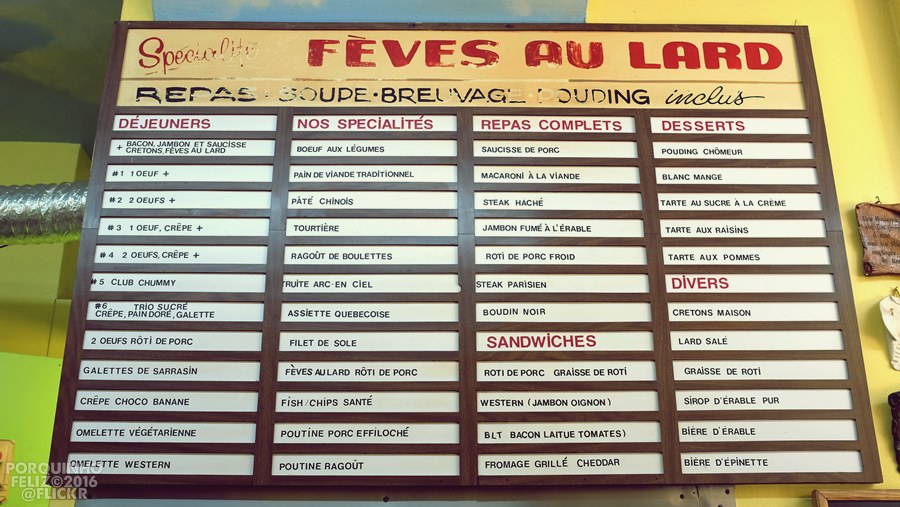 Spécialité FÈVES AU LARD
REPAS · SOUPE · BREUVAGE · POUDING inclus
DÉJEUNERS
+ BACON, JAMBON ET SAUCISSE
CRETONS, FÈVES AU LARD
#1 1 OEUF +
#2 2 OEUFS +
#3 1 OEUF, CRÊPE +
#4 2 OEUFS, CRÊPE +
#5 CLUB CHUMMY
#6 TRIO SUCRÉ
CRÊPE, PAIN DORÉ, GALETTE
2 OEUFS RÔTI DE PORC
GALETTES DE SARRASIN
CRÊPE CHOCO BANANE
OMELETTE VÉGÉTARIENNE
OMELETTE WESTERN
NOS SPECIALITÉS
BOEUF AUX LÉGUMES
PAIN DE VIANDE TRADITIONNEL
PÂTÉ CHINOIS
TOURTIÈRE
RAGOÛT DE BOULETTES
TRUITE ARC-EN CIEL
ASSIETTE QUEBECOISE
FILET DE SOLE
FÈVES AU LARD RÔTI DE PORC
FISH/CHIPS SANTÉ
POUTINE PORC EFFILOCHÉ
POUTINE RAGOÛT
REPAS COMPLETS
SAUCISSE DE PORC
MACARONI À LA VIANDE
STEAK HACHÉ
JAMBON FUMÉ À L'ÉRABLE
ROTI DE PORC FROID
STEAK PARISIEN
BOUDIN NOIR
SANDWICHES
ROTI DE PORC GRAISSE DE ROTI
WESTERN (JAMBON OIGNON)
BLT BACON LAITUE TOMATES)
FROMAGE GRILLÉ CHEDDAR
DESSERTS
POUDING CHÔMEUR
BLANC MANGE
TARTE AU SUCRE À LA CRÈME
TARTE AUX RAISINS
TARTE AUX POMMES
DIVERS
CRETONS MAISON
LARD SALÉ
GRAISSE DE ROTI
SIROP D'ÉRABLE PUR
BIÈRE D'ÉRABLE
BIÈRE D'ÉPINETTE
PORQUINHO
FELIZ©2016
@FLICKR